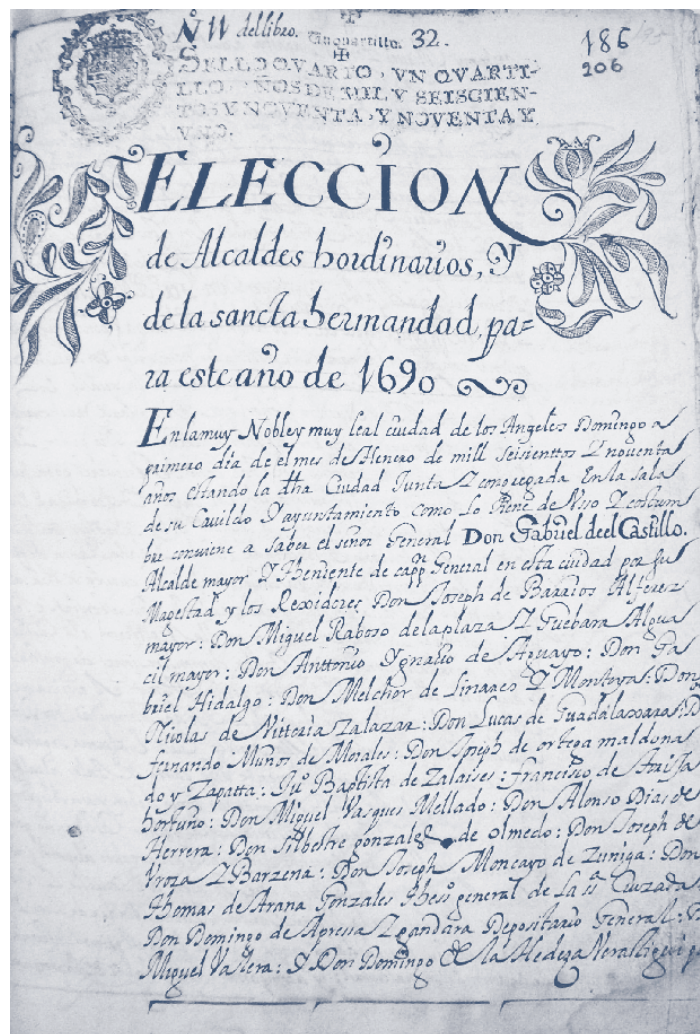 N.º 11 del libro. Un quartillo. 32. 186
206
SELLO QVARTO, VN QVARTI-
LLO, AÑOS DE MIL Y SEISCIEN-
TOS Y NOVENTA, Y NOVENTA Y
VNO.
ELECCION
de Alcaldes hordinarios, Y
de la sancta hermandad, pa=
ra este año de 1690
En la muy Noble y muy leal ciudad de los Angeles Domingo a
primero dia de el mes de Henero de mill seisienttos Y noventa
años estando la dha Ciudad Junta Y congregada En la sala
de su Cavildo Y ayuntamiento como Lo tiene de Vso Y costum
bre conviene a saber el señor General Don Gabriel deel Castillo.
Alcalde mayor Y theniente de cappn General en esta ciudad por su
Magestad y los Rexidores Don Joseph de Barrios Alferez
mayor: Don Miguel Raboso de la plaza Y Guebara Algua
cil mayor: Don Anttonio Ygnacio de Aguayo: Don Ga
briel Hidalgo: Don Melchor de Linares Y Montoya: Don
Nicolas de Vittoria Zalazar: Don Lucas de Guadalaxara: D
fernando Muños de Morales: Don Joseph de ortega maldona
do y Zapatta: Juº Baptista de Zalaises: francisco de
hortuño: Don Miguel Vasques Mellado: Don Alonso Dias de
Herrera: Don Silbestre gonzales de olmedo: Don Joseph de
Vroza Y Barzena: Don Joseph Moncayo de Zuniga: Don
Thomas de Arana Gonzales thesº general de la sta Cruzada
Don Domingo de Apressa Y gandara Depositario General:
Miguel Valera: Y Don Domingo de la Hedeza Verastigui